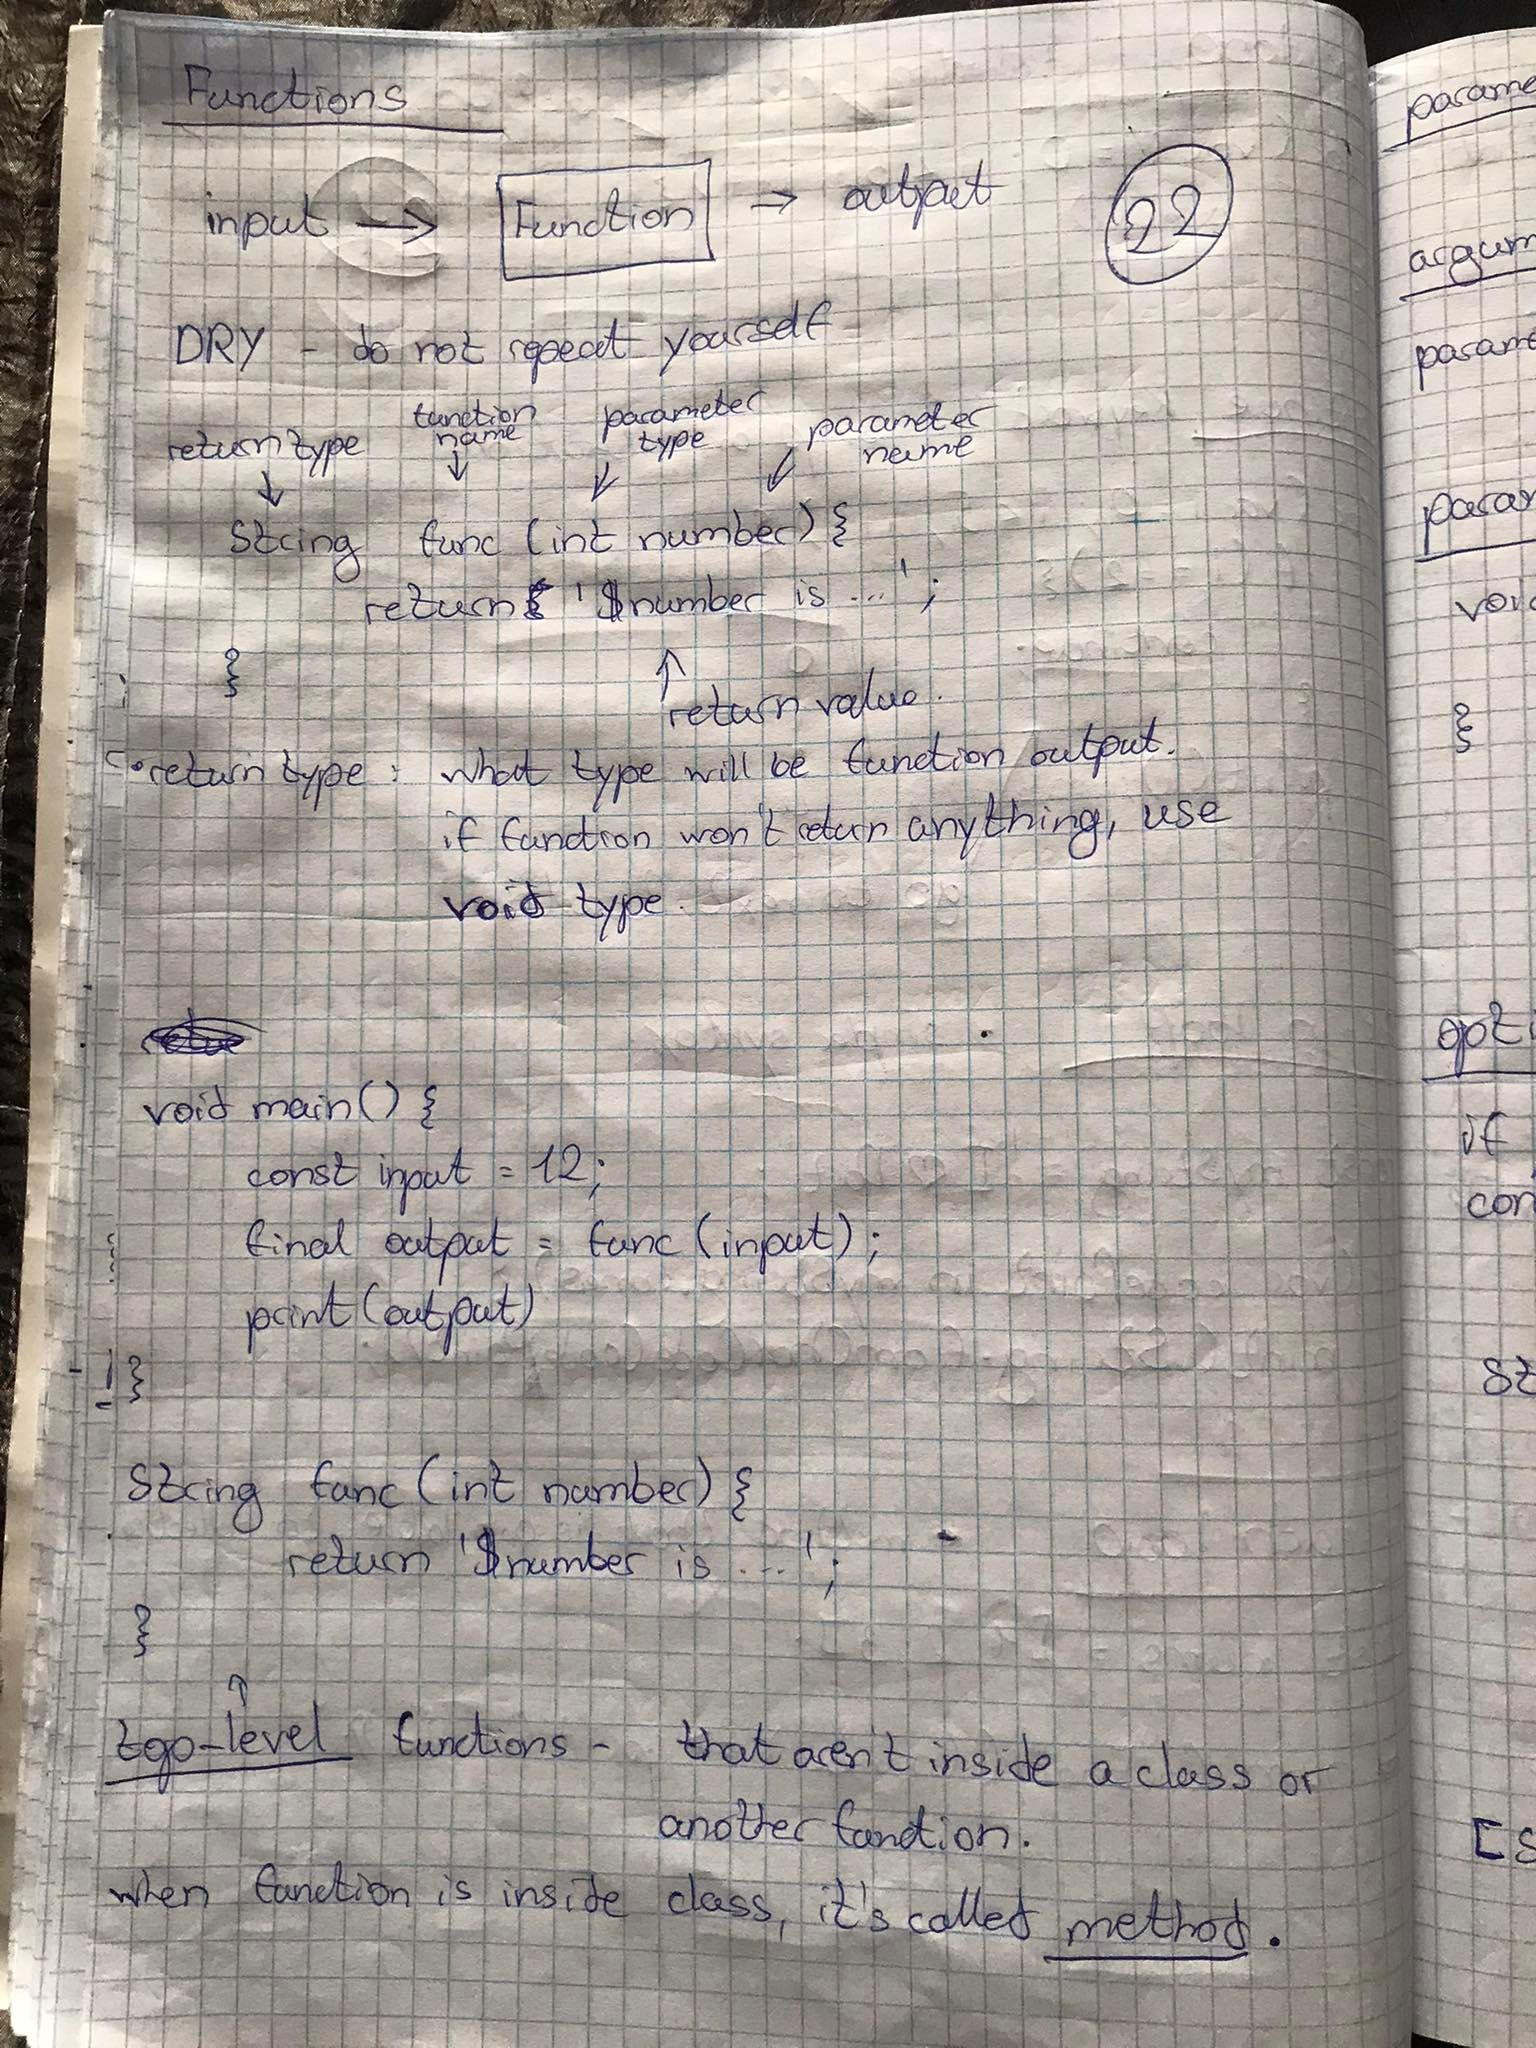 Functions
input → Function → output
22
DRY - do not repeat yourself
return type
function name
parameter type
parameter name
String func (int number) {
return '$number is ...';
}
return value.
• return type : what type will be function output.
if function won't return anything, use
void type.
void main() {
const input = 12;
final output = func (input);
print(output)
}
String func (int number) {
return '$number is ...';
}
top-level functions - that aren't inside a class or
another function.
when function is inside class, it's called method.
if
}